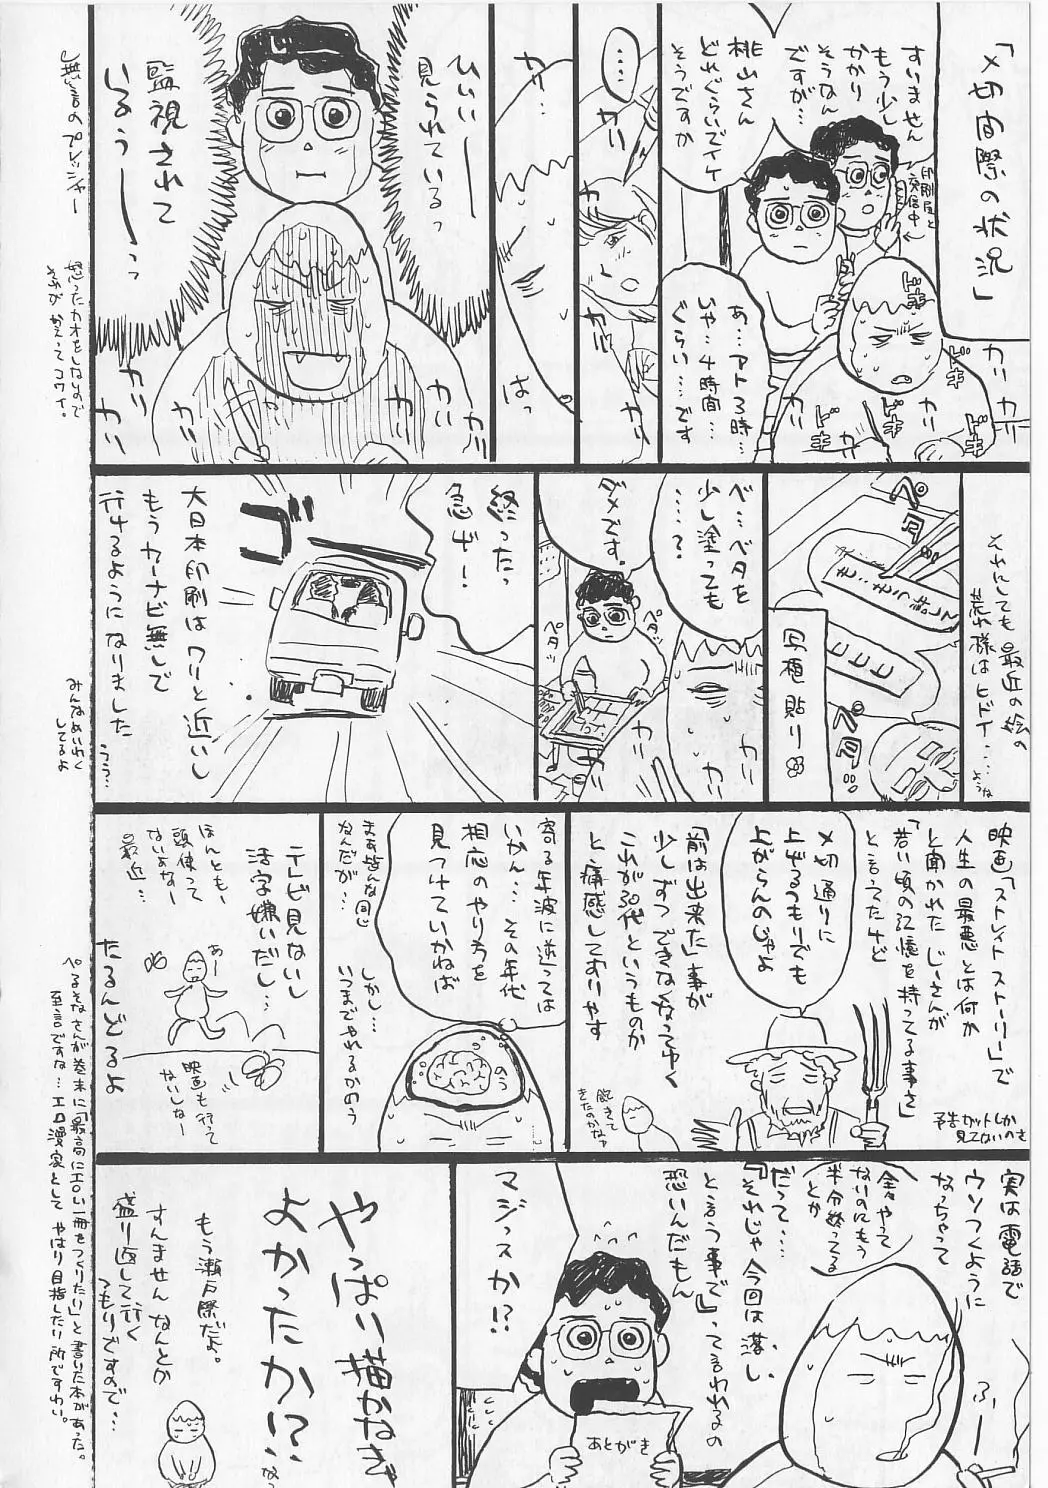 「〆切間際の状況」
すいません
もう少し
かかり
そうなん
ですが…
印刷屋と
交信中
桃山さん
どれぐらいでイケ
そうですか
あ…アト3時…
いや…4時間…
ぐらい…です
ドキ
ドキ
ドキ
ドキ
カリ
カリ
カリ
……
カリ
カリ
カリ
カリ…
はっ
ひいぃー
見られているっ
監視されて
いるぅーーっっ
カリ
カリ
カリ
カリ
カリ
無言のプレッシャー
怒ったカオをしないので
それがかえってコワイ。
それにしても最近の絵の
荒れ様はヒドイ…
ような
ペタ
写植貼り
ペタ
ベ…ベタを
少し塗っても
……?
ダメです。
ペタッ
ペタッ
カリ
カリ
カリ
終ったっ
急げー!
ゴー
大日本印刷はワリと近いし
もうカーナビ無しで
行けるようになりました
うう…
みんなめいわく
してるよ
映画「ストレイトストーリー」で
人生の最悪とは何か
と聞かれたじーさんが
「若い頃の記憶を持ってる事さ」
と言ってたけど
予告カットしか
見てないのさ
〆切通りに
上げるつもりでも
上がらんのじゃよ
「前は出来た」事が
少しずつできなくなってゆく
これが30代というものか
と痛感しておりやす
飽きて
きたのかなァ
寄る年波に逆っては
いかん…その年代
相応のやり方を
見つけていかねば
まあ皆んな同じ
なんだが…
のう
しかし…
いつまでやれるかのう
テレビ見ないし
活字嫌いだし…
ほんとも、
頭使って
ないよなー
最近…
あー
映画も行って
ないしなー
たるんどるよ
実は電話で
ウソつくように
なっちゃって
全々やって
ないのにもう
半分終ってる
とか
ふーー
だって…
『それじゃ今回は落し、
と言う事で』って言われるの
恐いんだもん
マジっスか!?
あとがき
やっぱい描かねぎ
よかったかい?…
な
もう瀬戸際だよ。
すんませんなんとか
盛り返して行く
つもりですので…
ぺるそなさんが巻末に「最高にエロい一冊をつくりたい」と書いた本があった。
至言ですな…エロ漫家としてやはり目指したい所ですわい。